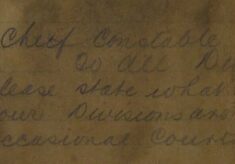 Chief Constable
To All Di
lease state what
our Divisions are
ccasional Courts